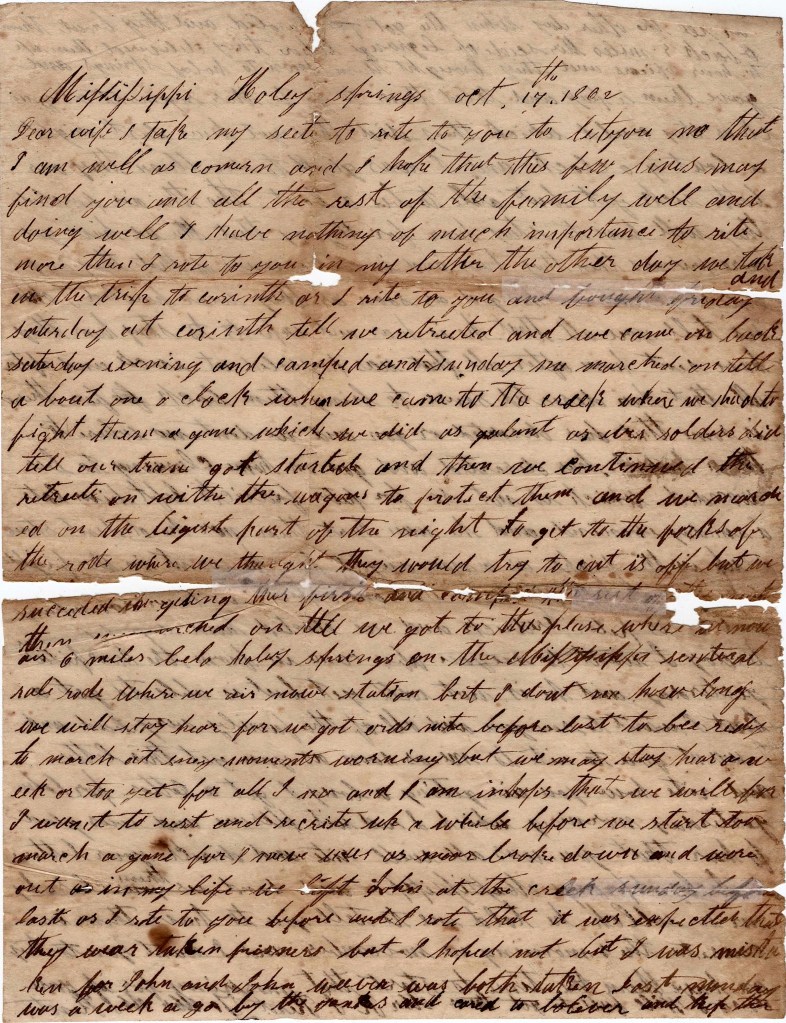 Mississippi Holey springs oct, 17th 1862
Dear wife I take my seete to rite to you to let you no that
I am well as comern and I hope that this few lines may
find you and all the rest of the family well and
doing well I have nothing of much importance to rite
more then I rote to you in my letter the other day we tuk
and
in the trip to corinth as I rite to you and fought friday
saturday at corinth tell we retreeted and we came on back
saturday evening and camped and sunday we marched on tell
a bout one o clock when we came to the creek where we had to
fight them a gane which we did as galant as ever solders did
tell our trane got started and then we continued the
retreete on withe the wagons to protect them and we march
ed on the bigist part of the night to get to the forks of
the rode where we thought they would try to cut is off but we
succeded in geting thar first and the rest of the
then marched on tell we got to the plase where we now
air 6 miles belo holey springs on the Mississippi sentural
rale rode where we air nowe station but I dont no how long
we will stay hear for we got ords nite before last to bee redy
to march at eney moments worning but we may stay hear a w
eek or too yet for all I no and I am in hops that we will for
I want to rest and recrite up a while before we start too
march a gane for I never was as near broke down and wore
out as in my life we left John at the creek sunday before
last as I rote to you before and I rote that it was expected that
they wear taken prisners but I hoped not but I was mista
ken for John and John weever was both taken last munday
was a week a go by the yankes and card to boliver and kep ther